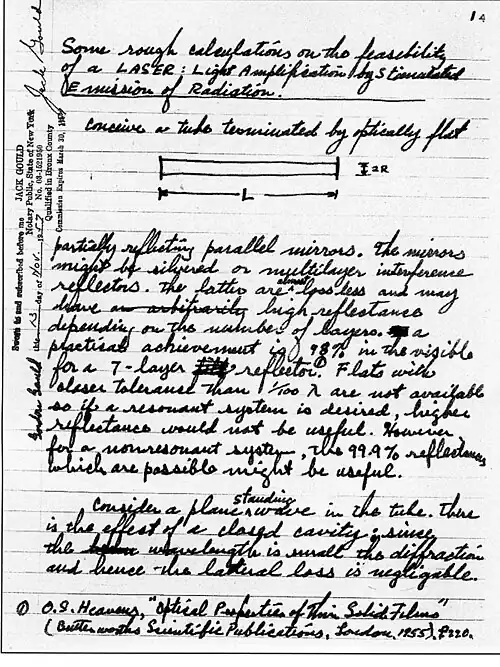 1 A
Some rough calculations on the feasibility
of a LASER: Light Amplification by Stimulated
Emission of Radiation.
Conceive a tube terminated by optically flat
= 2R
L
partially reflecting parallel mirrors. The mirrors
might be silvered or multilayer interference
reflectors. The latter are almost lossless and may
have an arbitrarily high reflectance
depending on the number of layers. a
practical achievement is 98% in the visible
for a 7-layer reflector.① Flats with
closer tolerance than 1/100 λ are not available
so if a resonant system is desired, higher
reflectance would not be useful. However
for a nonresonant system, the 99.9% reflectances
which are possible might be useful.
Consider a plane standing wave in the tube. There
is the effect of a closed cavity; since
the wavelength is small the diffraction
and hence the lateral loss is negligable.
① O.S. Heavens, "Optical Properties of Thin Solid Films"
(Butterworths Scientific Publications, London, 1955), p220.
Jack Gould
Sworn to and subscribed before me
the 13 day of Nov. 1957
JACK GOULD
Notary Public, State of New York
Qualified in Bronx County
Commission Expires March 30, 195
Gordon Gould